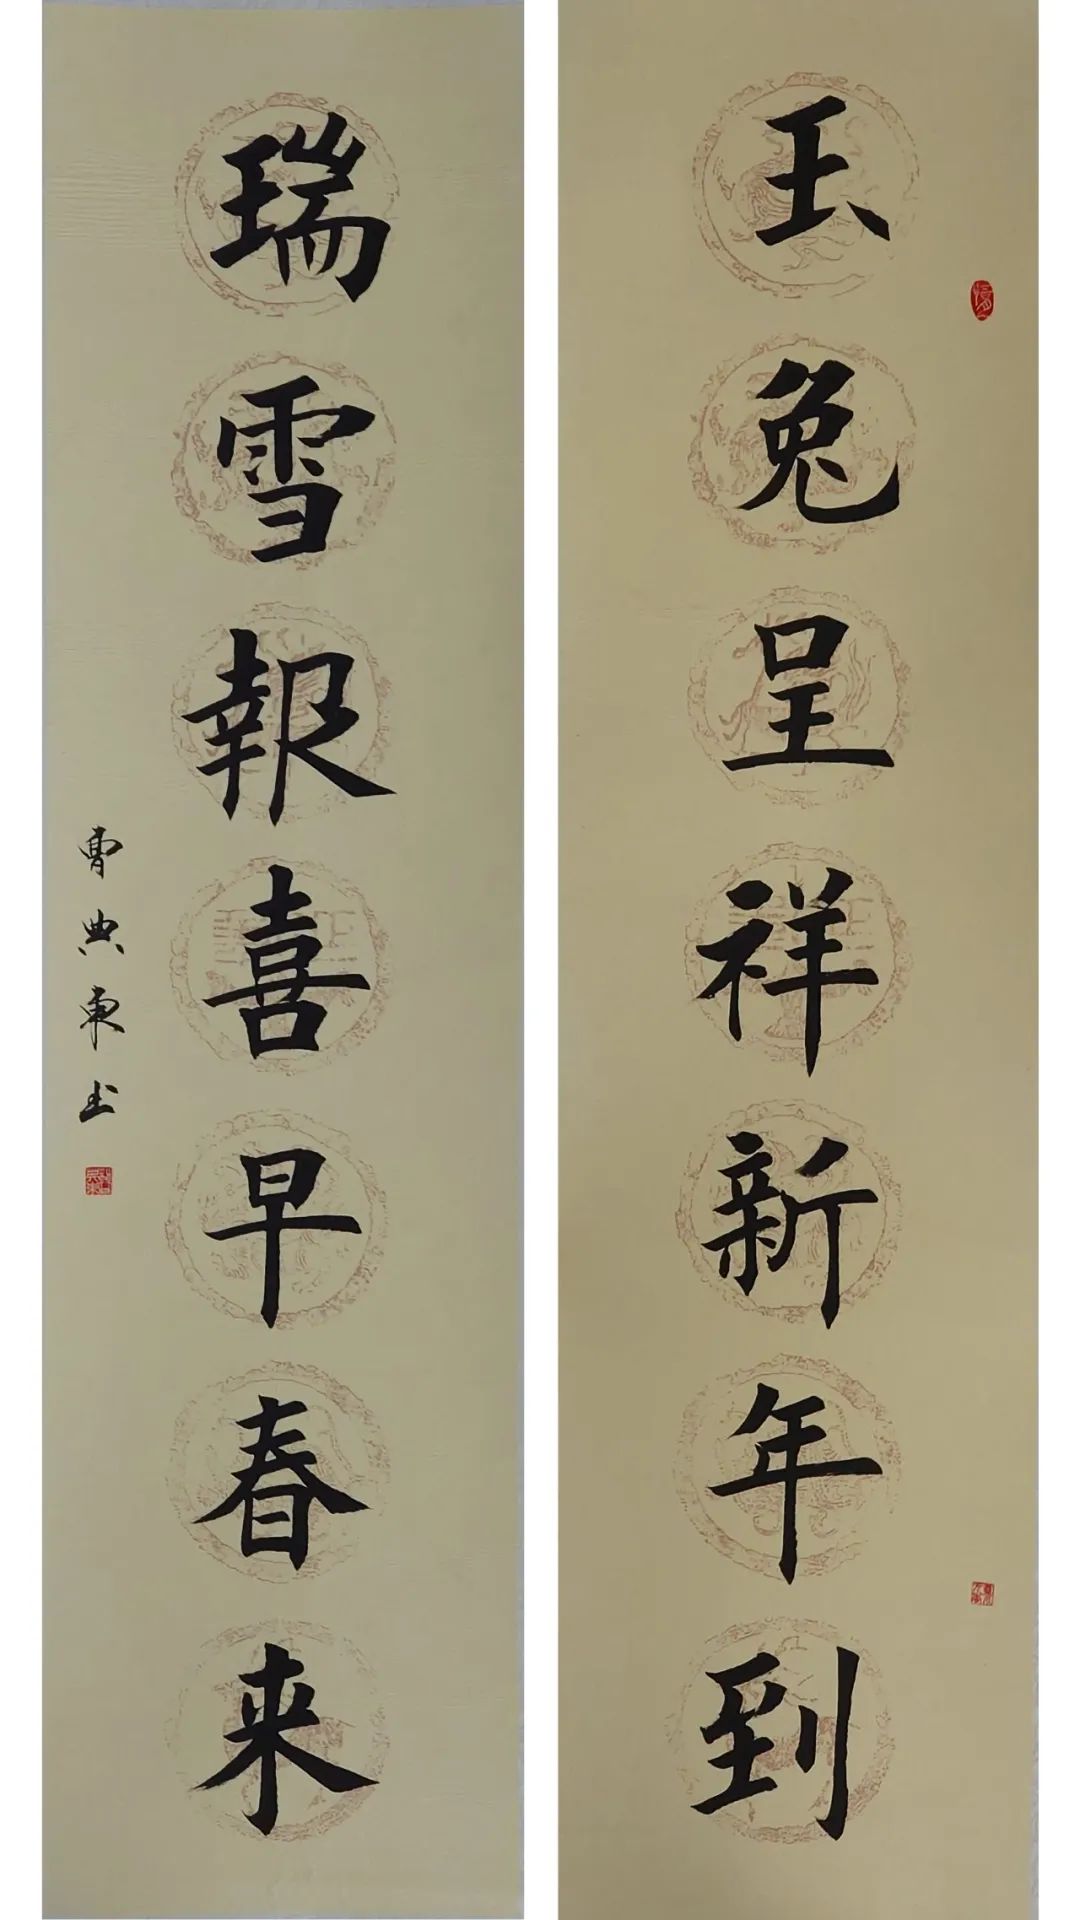 玉兔呈祥新年到
瑞雪報喜早春来
曹典東书